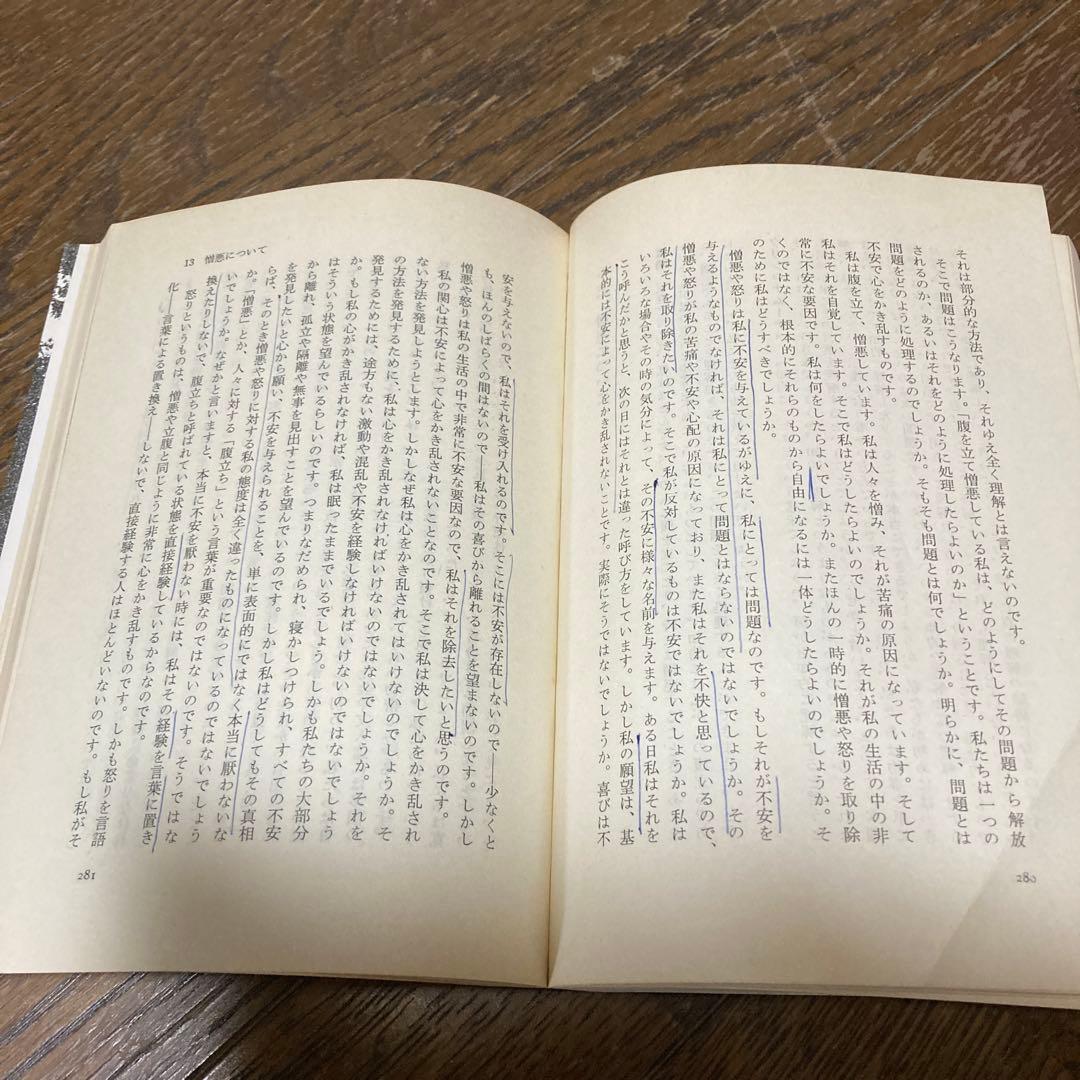 それは部分的な方法であり、それゆえ全く理解とは言えないのです。
そこで問題はこうなります。「腹を立て憎悪している私は、どのようにしてその問題から解放
されるのか、あるいはそれをどのように処理したらよいのか」ということです。私たちは一つの
問題をどのように処理するのでしょうか。そもそも問題とは何でしょうか。明らかに、問題とは
不安で心をかき乱すものです。
私は腹を立て、憎悪しています。私は人々を憎み、それが苦痛の原因になっています。そして
私はそれを自覚しています。そこで私はどうしたらよいのでしょうか。それが私の生活の中の非
常に不安な要因です。私は何をしたらよいでしょうか。またほんの一時的に憎悪や怒りを取り除
くのではなく、根本的にそれらのものから自由になるには一体どうしたらよいのでしょうか。そ
のために私はどうすべきでしょうか。
憎悪や怒りは私に不安を与えているがゆえに、私にとっては問題なのです。もしそれが不安を
与えるようなものでなければ、それは私にとって問題とはならないのではないでしょうか。その
憎悪や怒りが私の苦痛や不安や心配の原因になっており、また私はそれを不快と思っているので、
私はそれを取り除きたいのです。そこで私が反対しているものは不安ではないでしょうか。私は
いろいろな場合やその時の気分によって、その不安に様々な名前を与えます。ある日私はそれを
こう呼んだかと思うと、次の日にはそれとは違った呼び方をしています。しかし私の願望は、基
本的には不安によって心をかき乱されないことです。実際にそうではないでしょうか。喜びは不
280
13 憎悪について
安を与えないので、私はそれを受け入れるのです。そこには不安が存在しないので——少なくと
も、ほんのしばらくの間はないので——私はその喜びから離れることを望まないのです。しかし
憎悪や怒りは私の生活の中で非常に不安な要因なので、私はそれを除去したいと思うのです。
私の関心は不安によって心をかき乱されないことなのです。そこで私は決して心をかき乱され
ない方法を発見しようとします。しかしなぜ私は心をかき乱されてはいけないのでしょうか。そ
の方法を発見するために、私は心をかき乱されなければいけないのではないでしょうか。それを
発見するためには、途方もない激動や混乱や不安を経験しなければいけないのではないでしょう
か。もし私の心がかき乱されなければ、私は眠ったままでいるでしょう。しかも私たちの大部分
はそういう状態を望んでいるらしいのです。つまりなだめられ、寝かしつけられ、すべての不安
から離れ、孤立や隔離や無事を見出すことを望んでいるのです。しかし私はどうしてもその真相
を発見したいと心から願い、不安を与えられることを、単に表面的にではなく本当に厭わないな
らば、そのとき憎悪や怒りに対する私の態度は全く違ったものになっているのではないでしょう
か。「憎悪」とか、人々に対する「腹立ち」という言葉が重要なのではないのです。そうではな
いでしょうか。なぜかと言いますと、本当に不安を厭わない時には、私はその経験を言葉に置き
換えたりしないで、腹立ちと呼ばれている状態を直接経験しているからなのです。
怒りというものは、憎悪や立腹と同じように非常に心をかき乱すものです。しかも怒りを言語
化——言葉による置き換え——しないで、直接経験する人はほとんどいないのです。もし私がそ
281